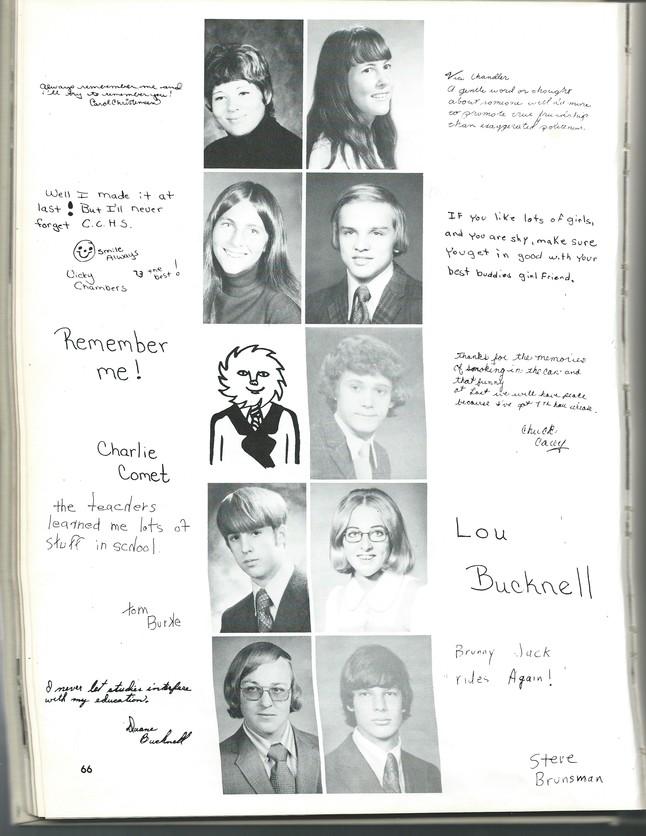 Always remember me and
i'll try to remember you!
Carol Christensen
Vicu Chandler
A gentle word or thought
about someone well is more
to promote true friendship
than exaggerated politeness.
Well I made it at
last! But I'll never
forget C.C.H.S.
Smile
Always
Vicky
Chambers
73 the
best!
If you like lots of girls,
and you are shy, make sure
you get in good with your
best buddies girl friend.
Remember
me!
Charlie
Comet
Thanks for the memories
of smoking in the can and
that funny
at last we will have peace
because I've got 7th hou
Chuck
Casey
the teachers
learned me lots of
stuff in school.
Tom
Burke
Lou
Bucknell
I never let studies interfere
with my education.
Duane
Bucknell
Brunny Jack
rides Again!
Steve
Brunsman
66